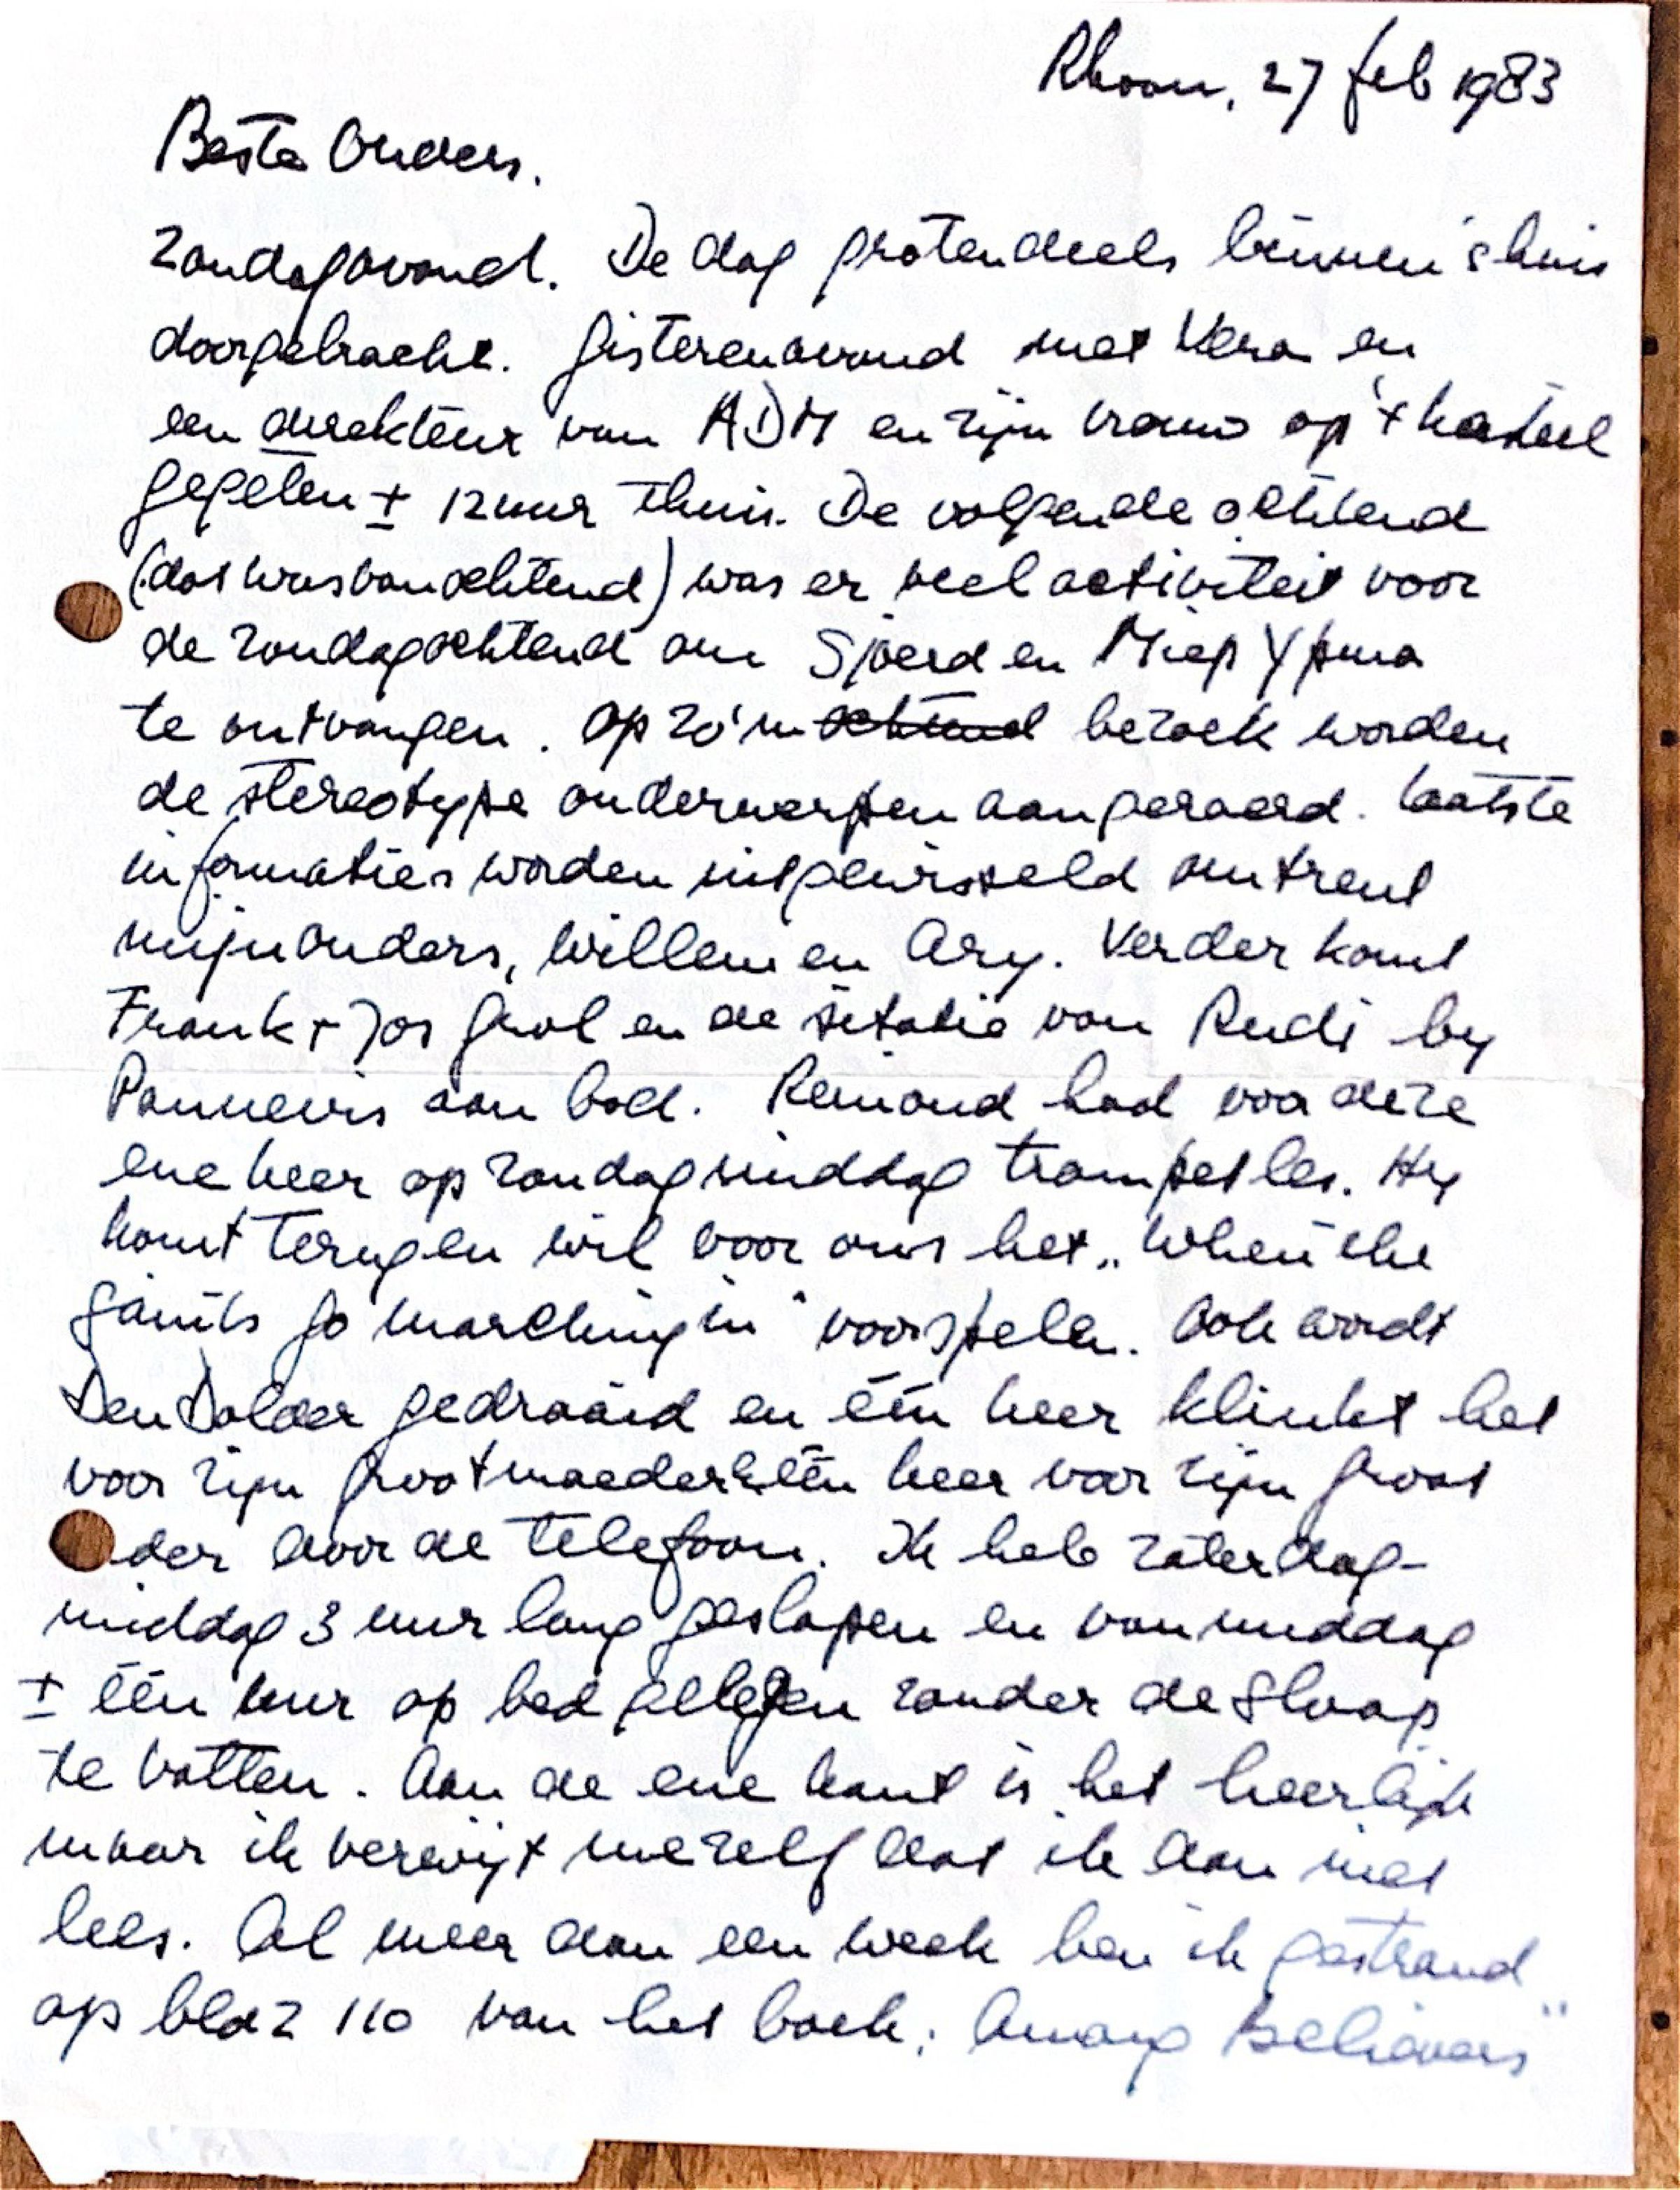 Rhoon, 27 feb 1983
Beste Ouders.
Zondagavond. De dag grotendeels binnen 's huis
doorgebracht. Gisterenavond met Vera en
een direkteur van ADM en zijn vrouw op 't kasteel
gegeten ± 12 uur thuis. De volgende ochtend
(dat was vanochtend) was er veel activiteit voor
de zondagochtend om Sjoerd en Miep Ypma
te ontvangen. Op zo'n ochtend bezoek worden
de stereotype onderwerpen aangeroerd. Laatste
informaties worden uitgewisseld omtrent
mijn ouders, Willem en Ary. Verder komt
Frank + Jos Grol en de sitatie van Rudi by
Pannevis aan bod. Remond had voor deze
ene keer op zondagmiddag trompetles. Hy
komt terug en wil voor ons het „When the
saints go marching in" voorspelen. Ook wordt
Den Dolder gedraaid en één keer klinkt het
voor zijn grootmoeder & één keer voor zijn groot
der door de telefoon. Ik heb zaterdag-
middag 3 uur lang geslapen en vanmiddag
± één uur op bed gelegen zonder de slaap
te vatten. Aan de ene kant is het heerlijk
maar ik verwijt mezelf dat ik dan niet
lees. Al meer dan een week ben ik gestrand
op bladz 110 van het boek: Among Believers"